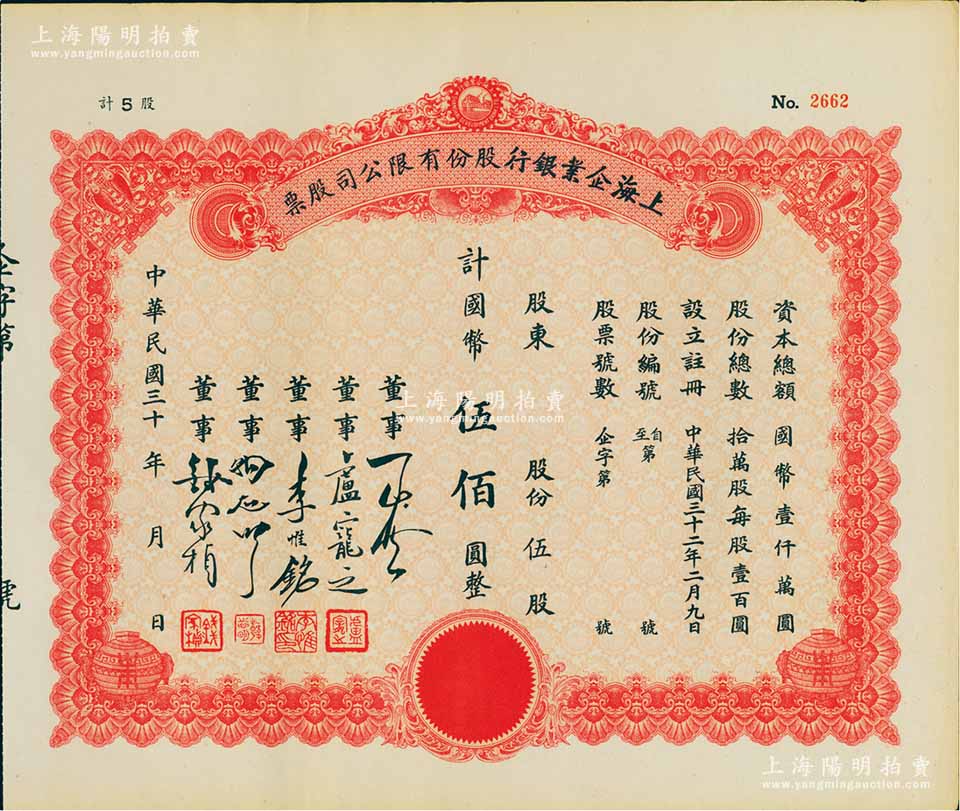 上海陽明拍賣
www.yangmingauction.com
計 5 股
No. 2662
上海企業銀行股份有限公司股票
資本總額 國幣壹仟萬圓
股份總數 拾萬股每股壹百圓
設立註冊 中華民國三十二年二月九日
股份編號 自至第 號
股票號數 企字第 號
股東 股份 伍 股
計國幣 伍佰 圓整
董事
董事 盧寵之
董事 李惟銘
董事
董事 錢家楨
中華民國三十 年 月 日
企字第 號
上海陽明拍賣
www.yangmingauction.com
上海陽明拍賣
www.yangmingauction.com